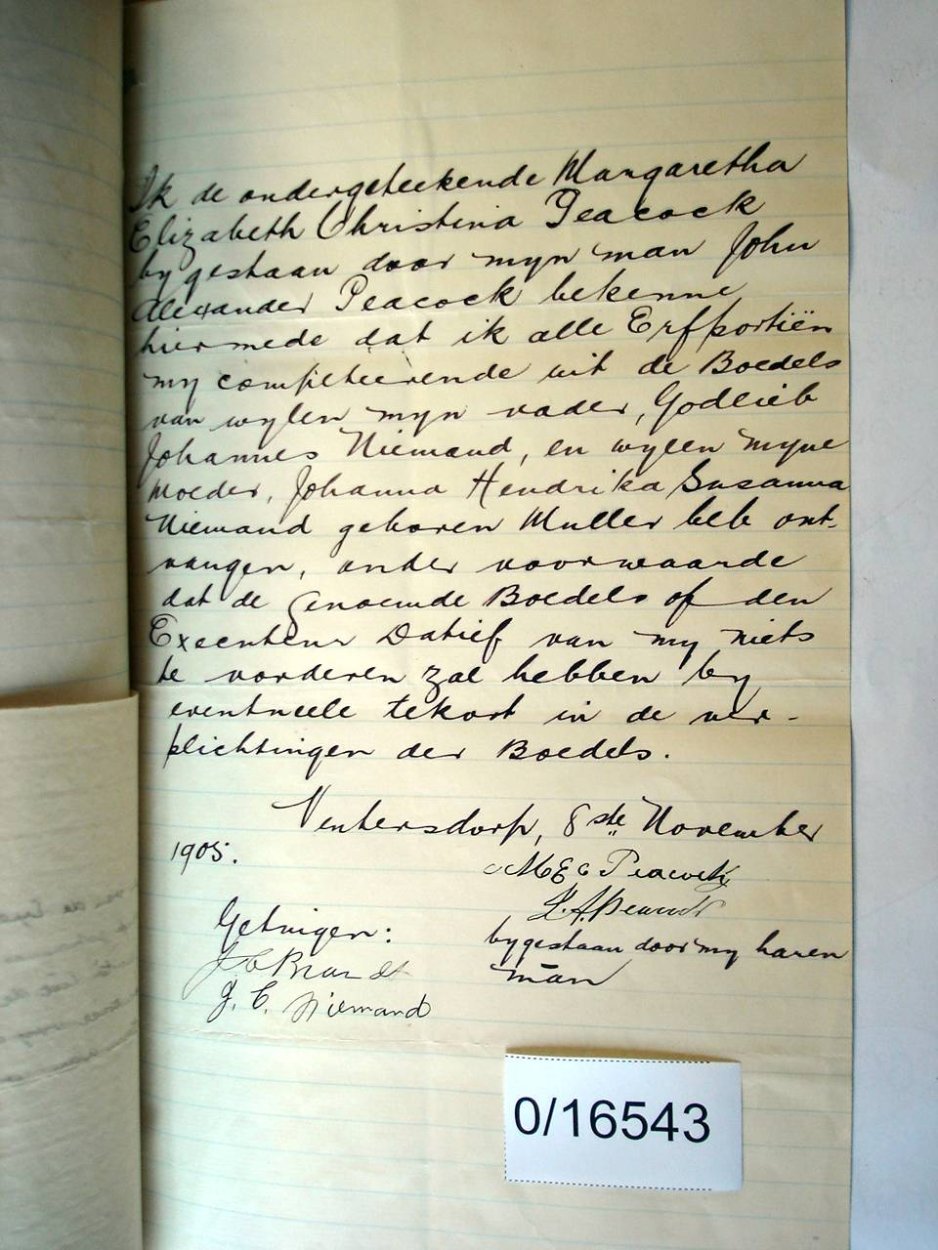 Ik de ondergeteekende Margaretha
Elizabeth Christina Peacock
bygestaan door myn man John
Alexander Peacock bekenne
hiermede dat ik alle Erfportiën
my competeerende uit de Boedels
van wylen myn vader, Godlieb
Johannes Niemand, en wylen myne
moeder, Johanna Hendrika Susanna
Niemand geboren Muller heb ont-
vangen, onder voorwaarde
dat de genoemde Boedels of den
Executeur Datief van my niets
te vorderen zal hebben by
eventueele tekort in de ver-
plichtingen der Boedels.
Ventersdorp, 8ste November
1905.
M E C Peacock
Getuigen:
bygestaan door my haren
man
J C Brandt
G. C. Niemand
0/16543